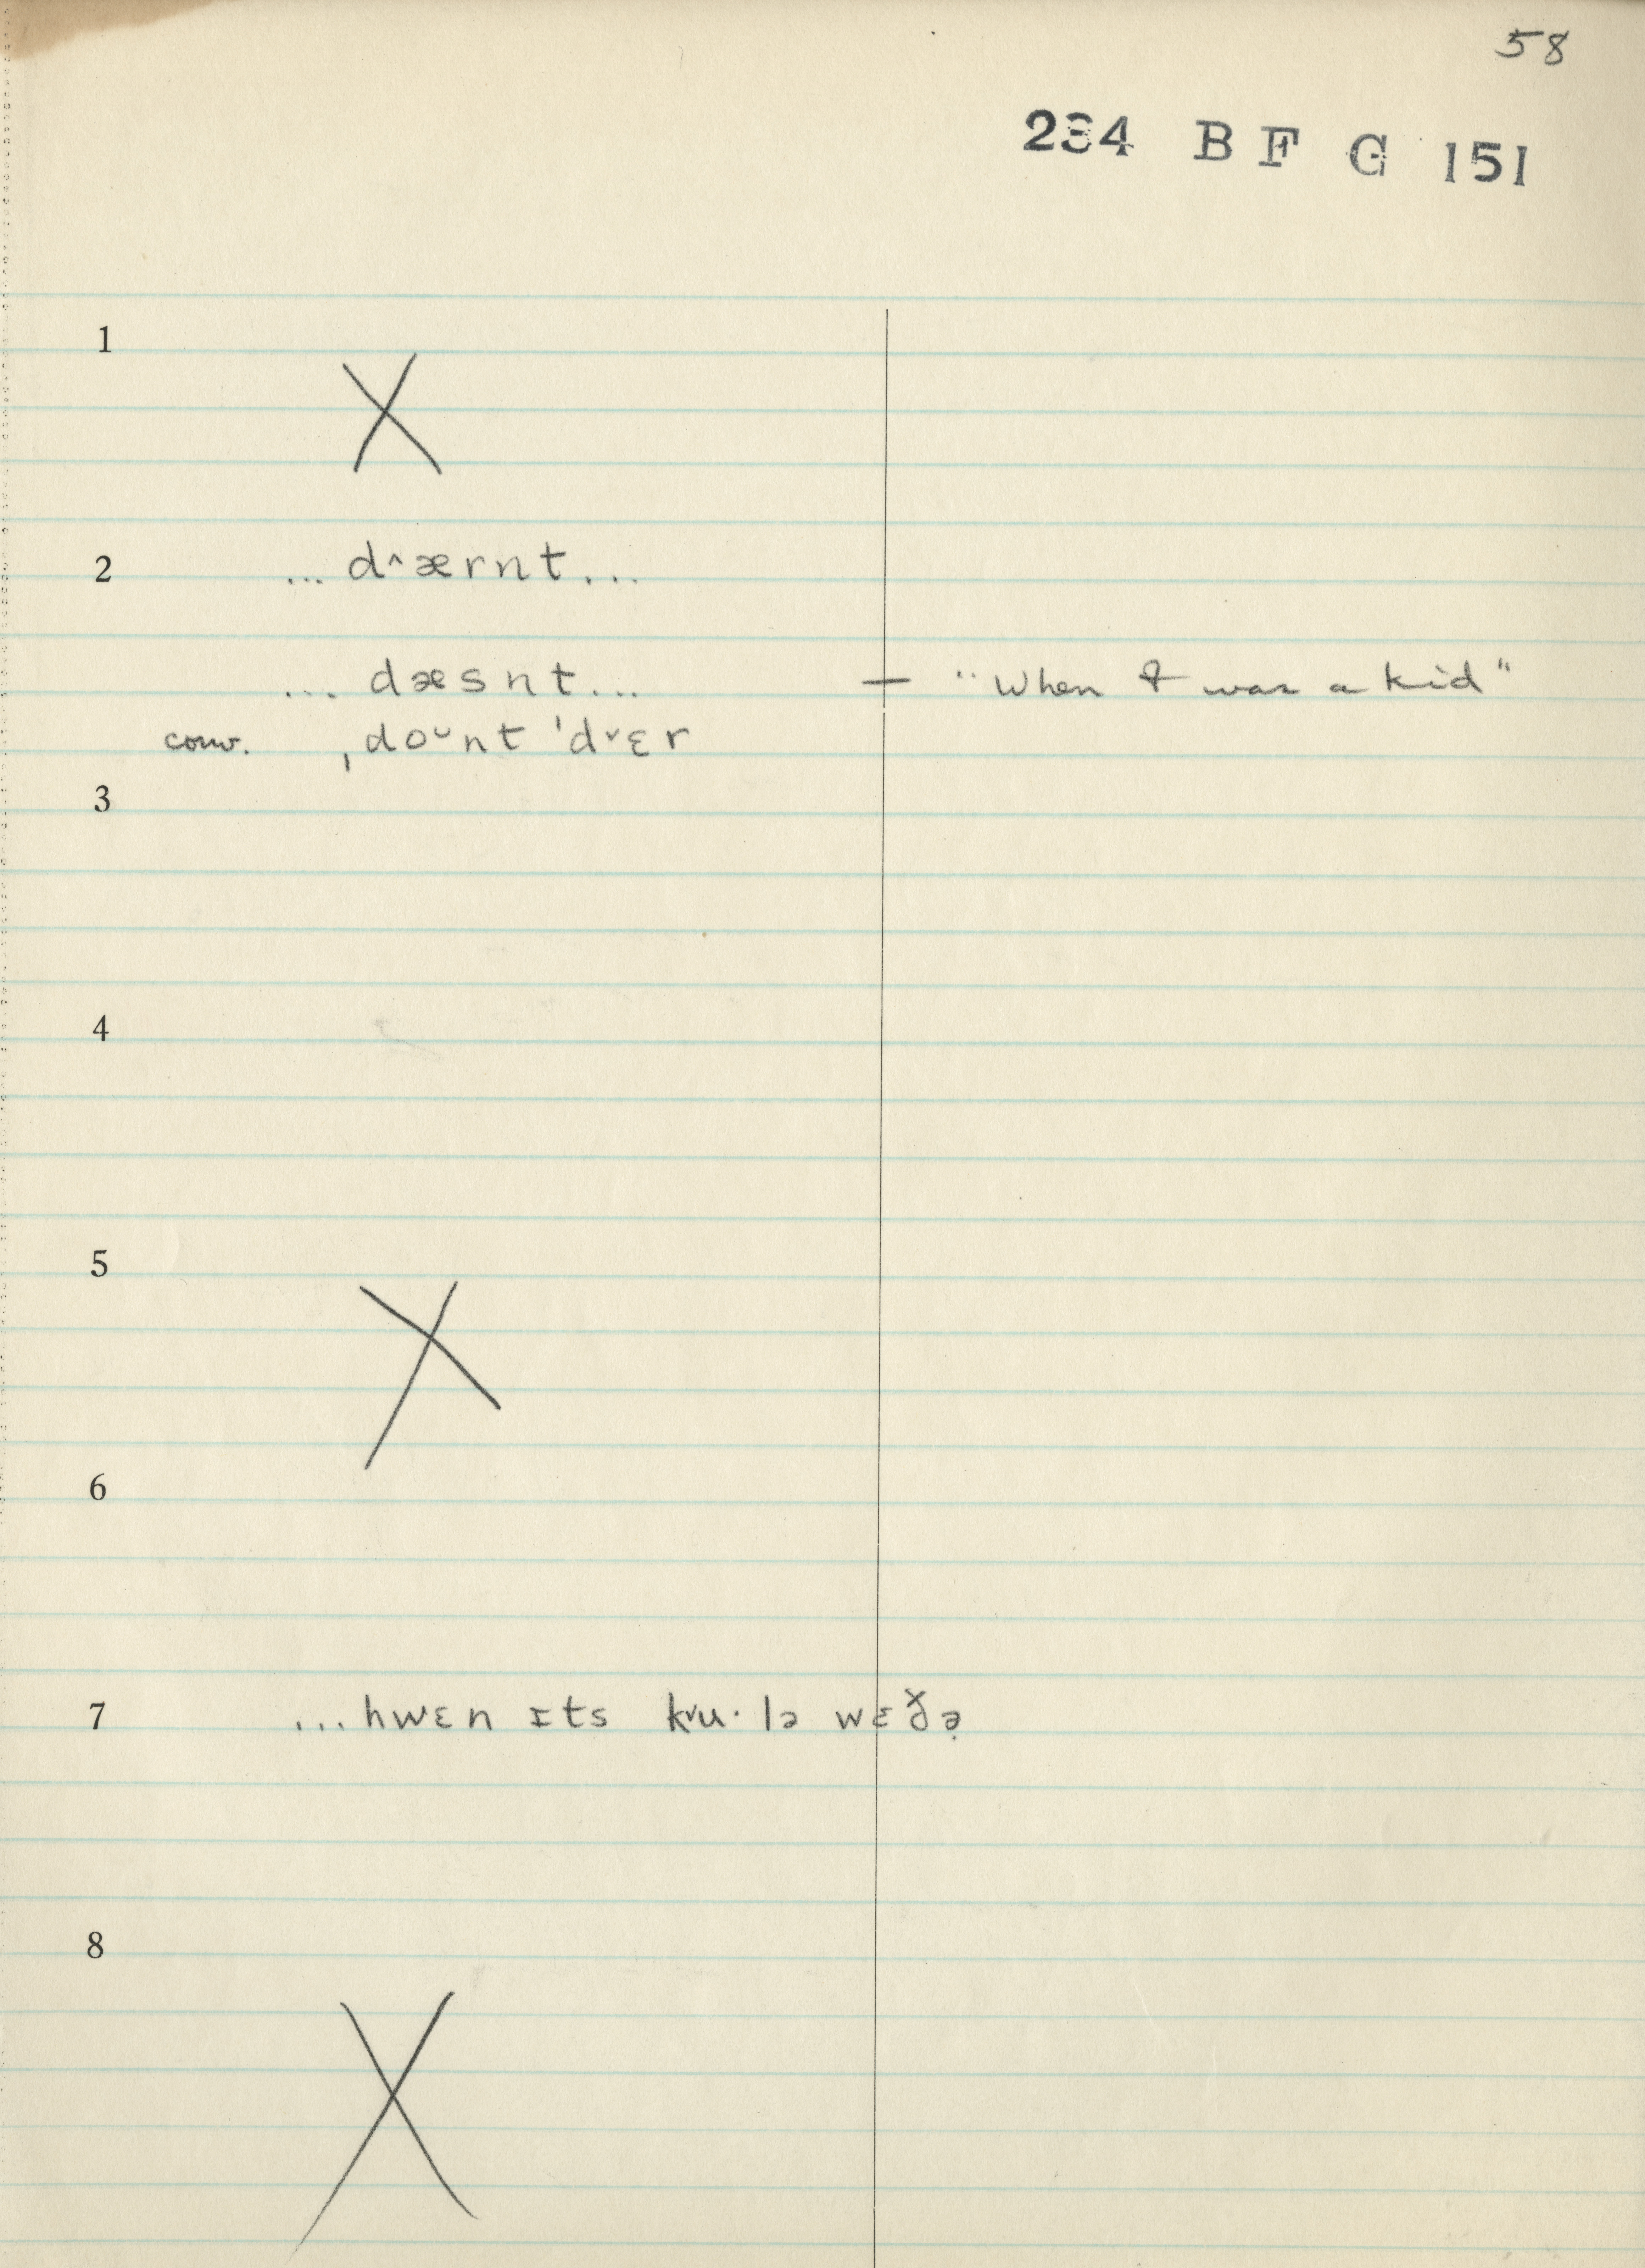 58
234 B F G 151
1
X
2 ... d^ærnt...
... dæsnt... — "When I was a kid"
conv. ˌdoᴗnt 'd˅ɛr
3
4
5
X
6
7 ... hwɛn ɪts k˅u· lə wɛð̌ə̣
8
X